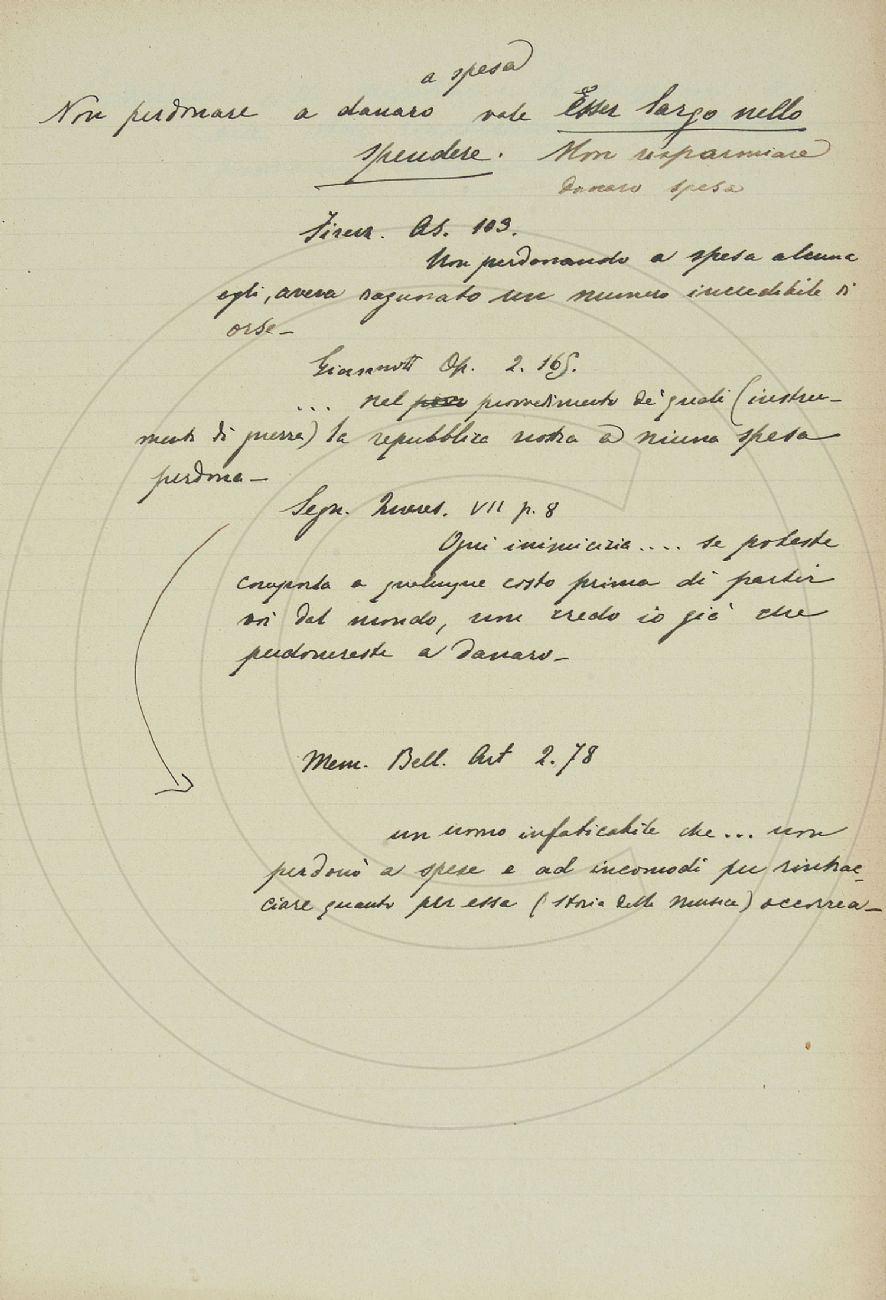 a spesa
Non perdonare a danaro vale Esser largo nello
spendere. Non risparmiare
danaro spesa
Firenz. As. 103.
Non perdonando a spesa alcuna
egli, aveva ragunato un numero incredibile di
orse –
Giannott Op. 2. 165.
... nel provvedimento de' quali (instru-
menti di guerra) la repubblica nostra a niuna spesa
perdona –
Segn. VII p. 8
Ogni inimicizia .... se poteste
comporla a qualunque costo prima di partir
voi dal mondo, non credo io già che
perdonereste a danaro –
Mem. Bell. Art 2. 78
un uomo infaticabile che ... non
perdonò a spese e ad incomodi per rintrac-
ciare quanto per essa (storia della musica) occorrea –